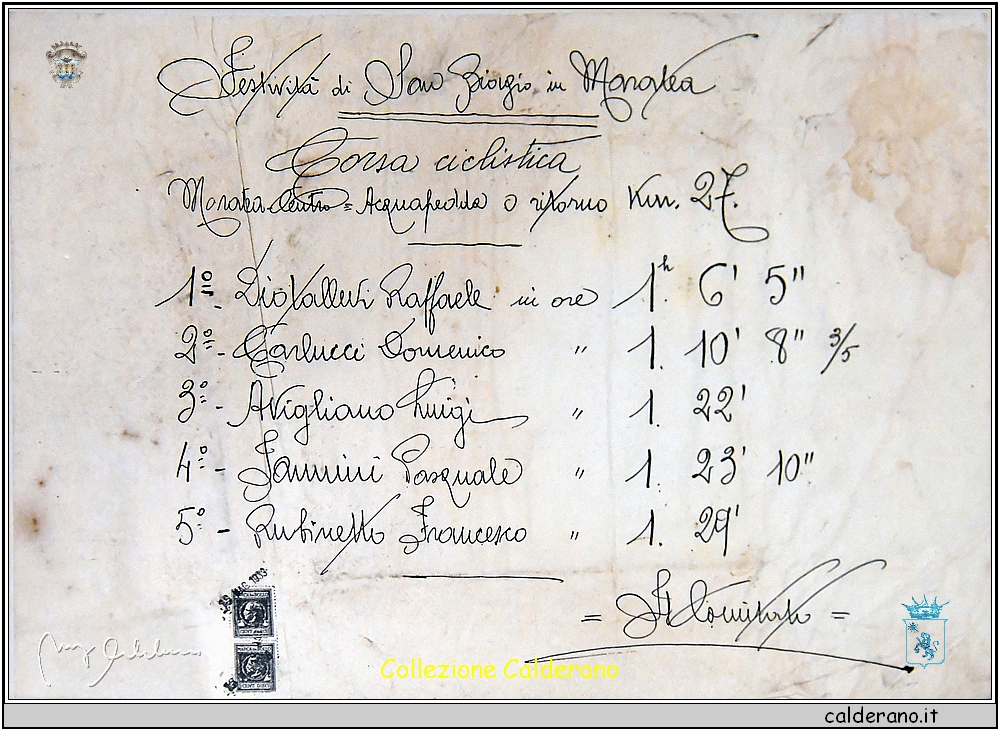 Festività di San Giorgio in Maratea
Corsa ciclistica
Maratea-Centro = Acquafredda e ritorno Km. 27.
1º - Diovalleri Raffaele in ore 1h. 6' 5"
2º - Carlucci Domenico " 1. 10' 8" 3/5
3º - Avigliano Luigi " 1. 22'
4º - Iannini Pasquale " 1. 23' 10"
5º - Rubinetto Francesco " 1. 29'
= Il Comitato =
1933
Collezione Calderano
calderano.it